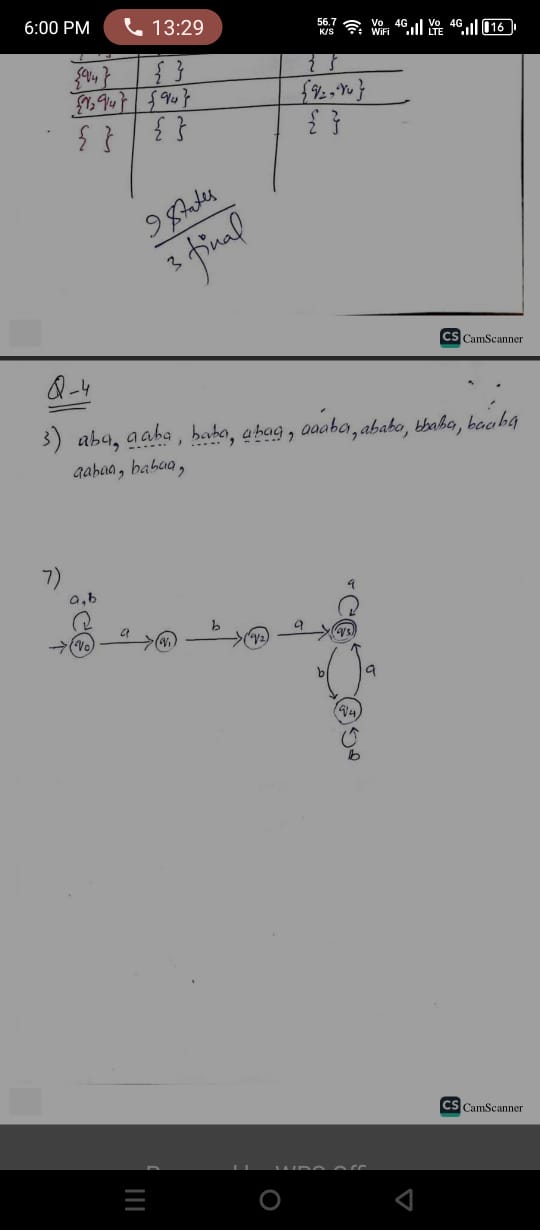 6:00 PM 13:29 56.7 K/S Vo WiFi 4G Vo LTE 4G 16
{q4} { } { }
{q2 q4} {q4} {q2, q4}
{ } { } { }
9 States
3 final
CS CamScanner
Q-4
3) aba, aaba, baba, abaa, aaaba, ababa, bbaba, baaba
aabaa, babaa,
7)
a,b
a
q0 a q1 b q2 a q3
b a
q4
b
CS CamScanner